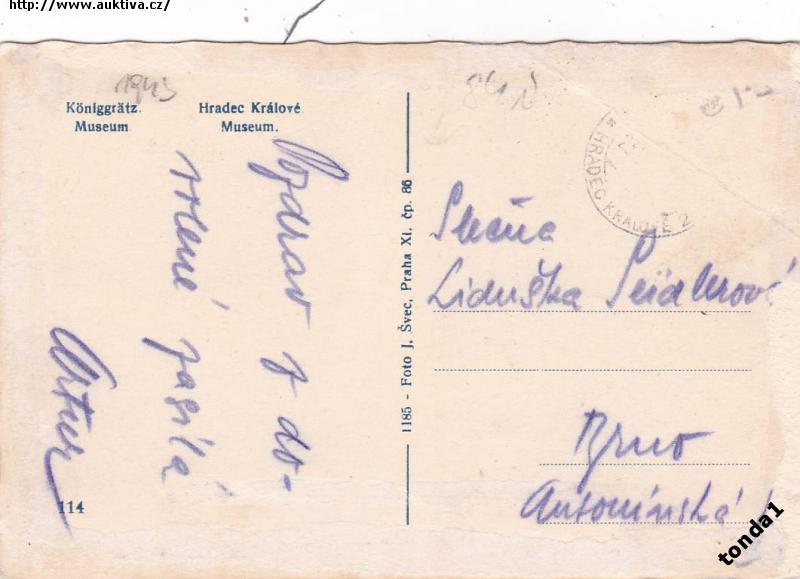 http://www.auktiva.cz/
1943
Königgrätz.
Museum
Hradec Králové
Museum.
Pozdrav z do-
volené zasílá
Artur
114
1185 - Foto J. Švec, Praha XI. čp. 86
HRADEC KRÁLOVÉ 2
Slečna
Liduška Seidlerová
Brno
Antonínská
tonda1